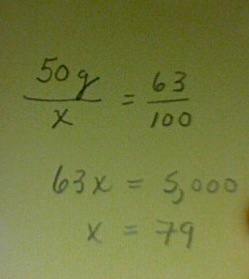 50g/x = 63/100
63x = 5,000
x = 79